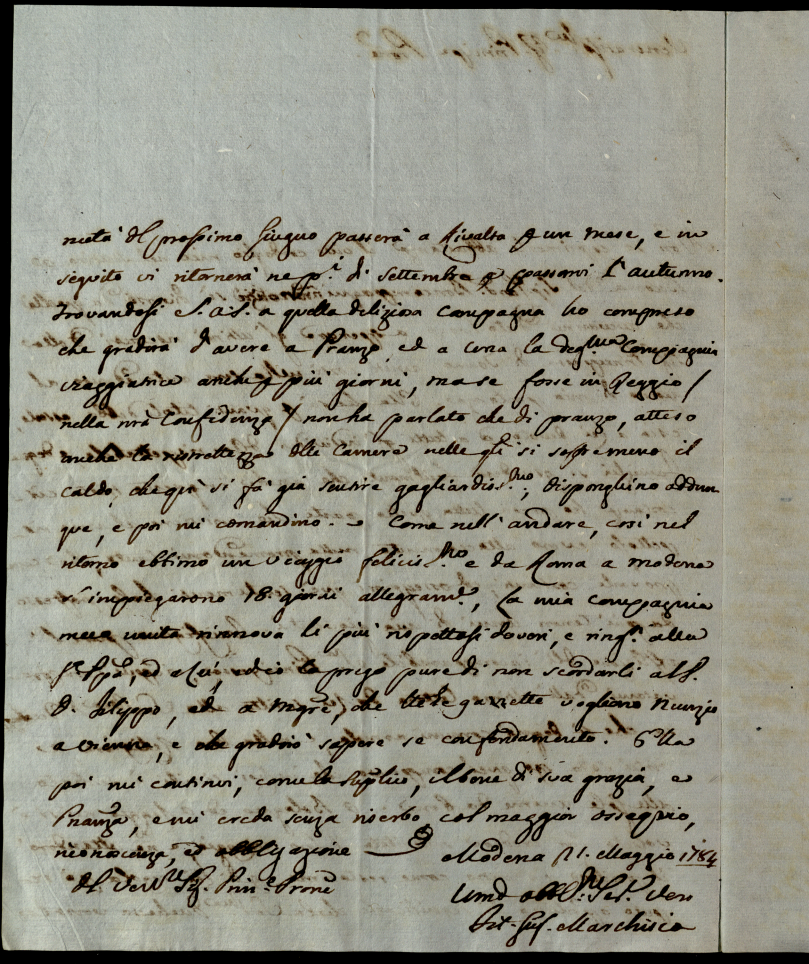 metà del prossimo Giugno passerà a Rivalta p un mese, e in
seguito vi ritornerà ne p.i di Settembre p passarvi l'autunno.
Trovandosi S. A. S. a quella deliziosa Campagna ho compreso
che gradirà d'avere a Pranzo, ed a cena la Compagnia
viaggiatrice anche p più giorni, ma se fosse in Reggio /
nella mia Confidenza / non ha parlato che di pranzo, atteso
anche la ristrettezza delle Camere nelle qli si soffre meno il
caldo, che quì si fà già sentire gagliardiss.mo; disponghino addun
que, e poi mi comandino. - Come nell'andare, così nel
ritorno ebbimo un viaggio felicis.mo e da Roma a Modena
s'impiegarono 18. giorni allegram.e, La mia compagnia
meco unita rinnova li più rispettosi doveri, e ring.i alla
ed a Lei, ed io la prego pure di non scordarli al S.
D. Filippo, ed a che gazzette vogliono Nunzio
a Vienna, e che gradirò sapere se con fondamento. Ella
poi mi continui, come la suplico, il bene di sua grazia, e
e mi creda senza riserbo, col maggior ossequio,
riconoscenza, ed obbligazione
Modena 21. Maggio 1784
Di Prin.e Prone
Umo obb.mo Ser.e Vero
Marchisio